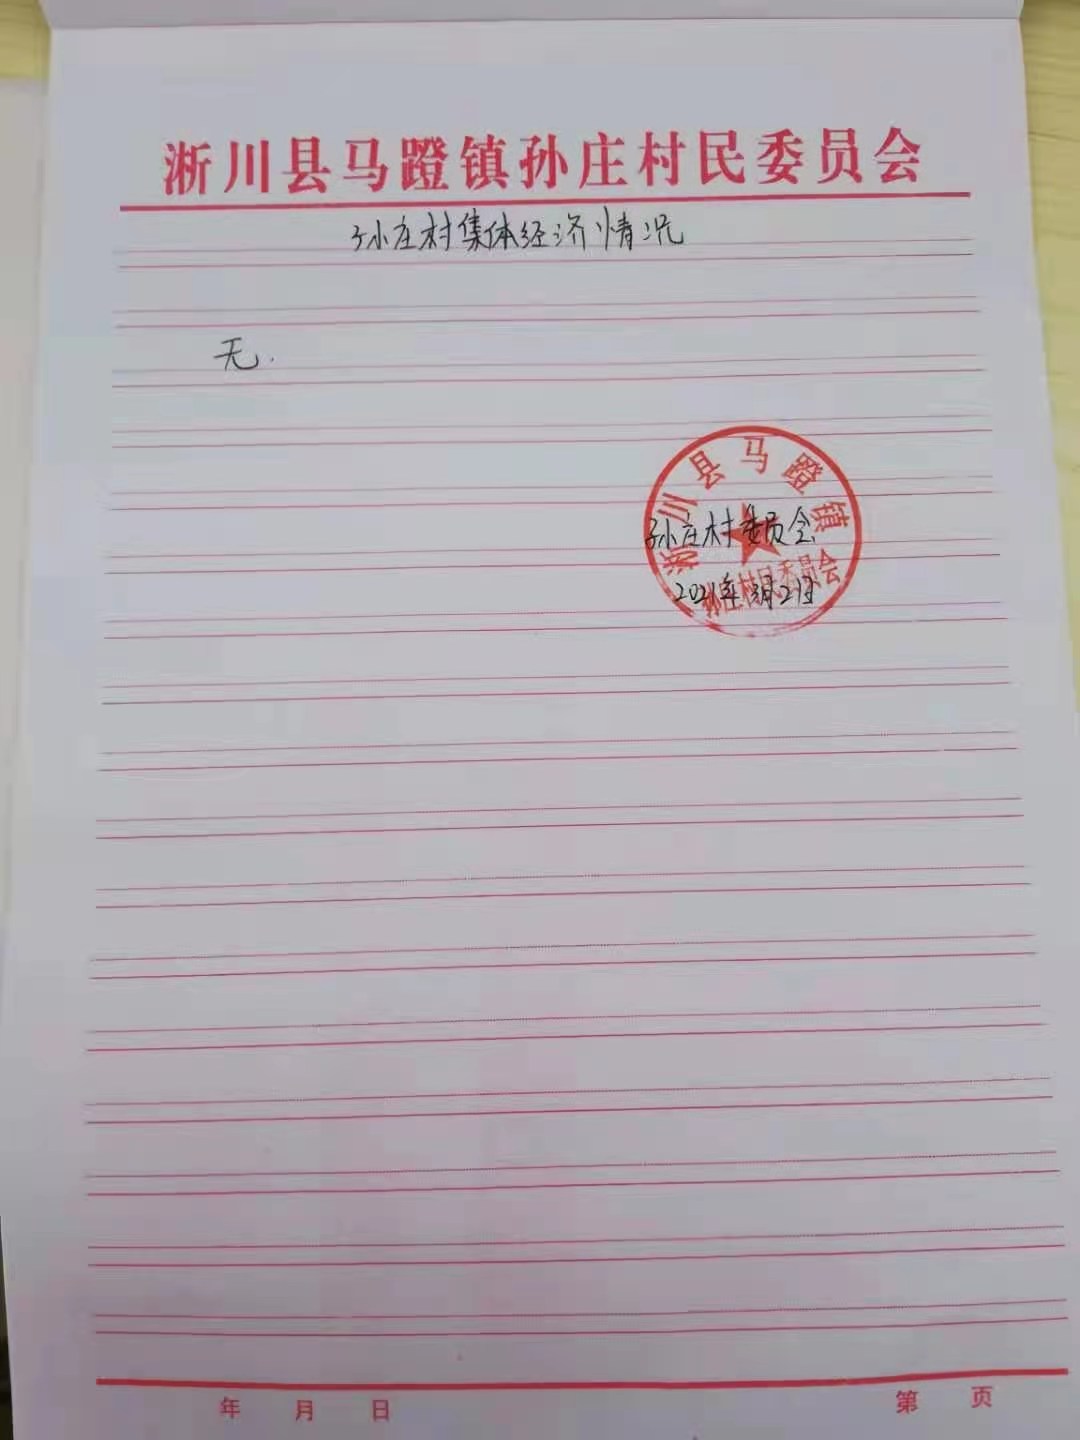 淅川县马蹬镇孙庄村民委员会
孙庄村集体经济情况
无.
淅川县马蹬镇
孙庄村委员会
孙庄村民委员会
2021年3月2日
年 月 日
第 页